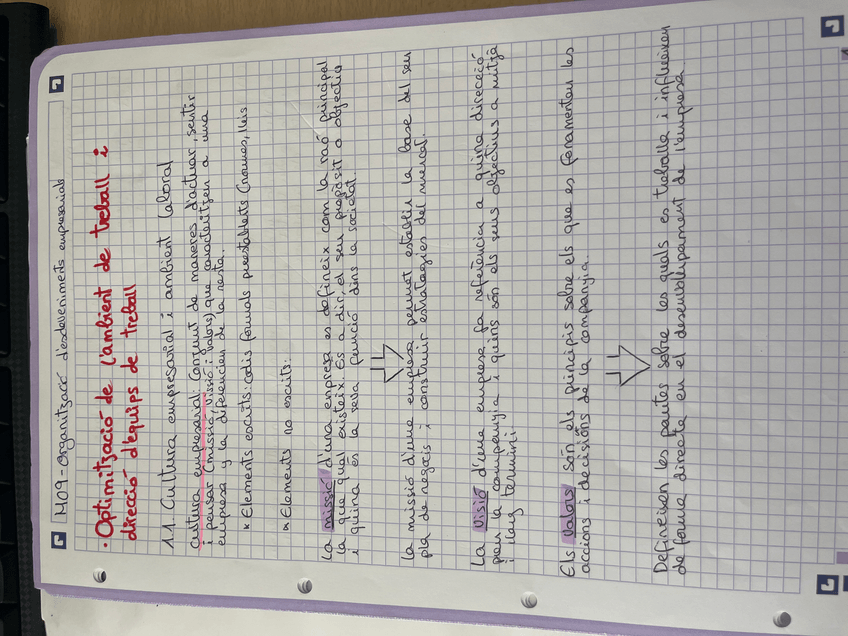 M09-Organització d'esdeveniments empresarials
· Optimització de l'ambient de treball i
direcció d'equips de treball
1.1. Cultura empresarial i ambient laboral
Cultura empresarial: Conjunt de maneres d'actuar, sentir
i pensar (missió, visió i valors) que caracteritzen a una
empresa y la diferencien de la resta.
* Elements escrits: codis formals preestablerts (normes, lleis
* Elements no escrits:
La missió d'una empresa es defineix com la raó principal
la que qual existeix. És a dir, el seu propòsit o objectiu
i quina és la seva funció dins la societat.
La missió d'una empresa permet establir la base del seu
pla de negocis i construir estratègies del mercat.
La Visió d'una empresa fa referència a quina direcció
pren la companyia i quins són els seus objectius a mitjà
i llarg termini
Els Valors són els principis sobre els que es fonamenten les
accions i decisions de la companyia.
Defineixen les pautes sobre les quals es treballa i influeixen
de forma directa en el desenvolupament de l'empresa.